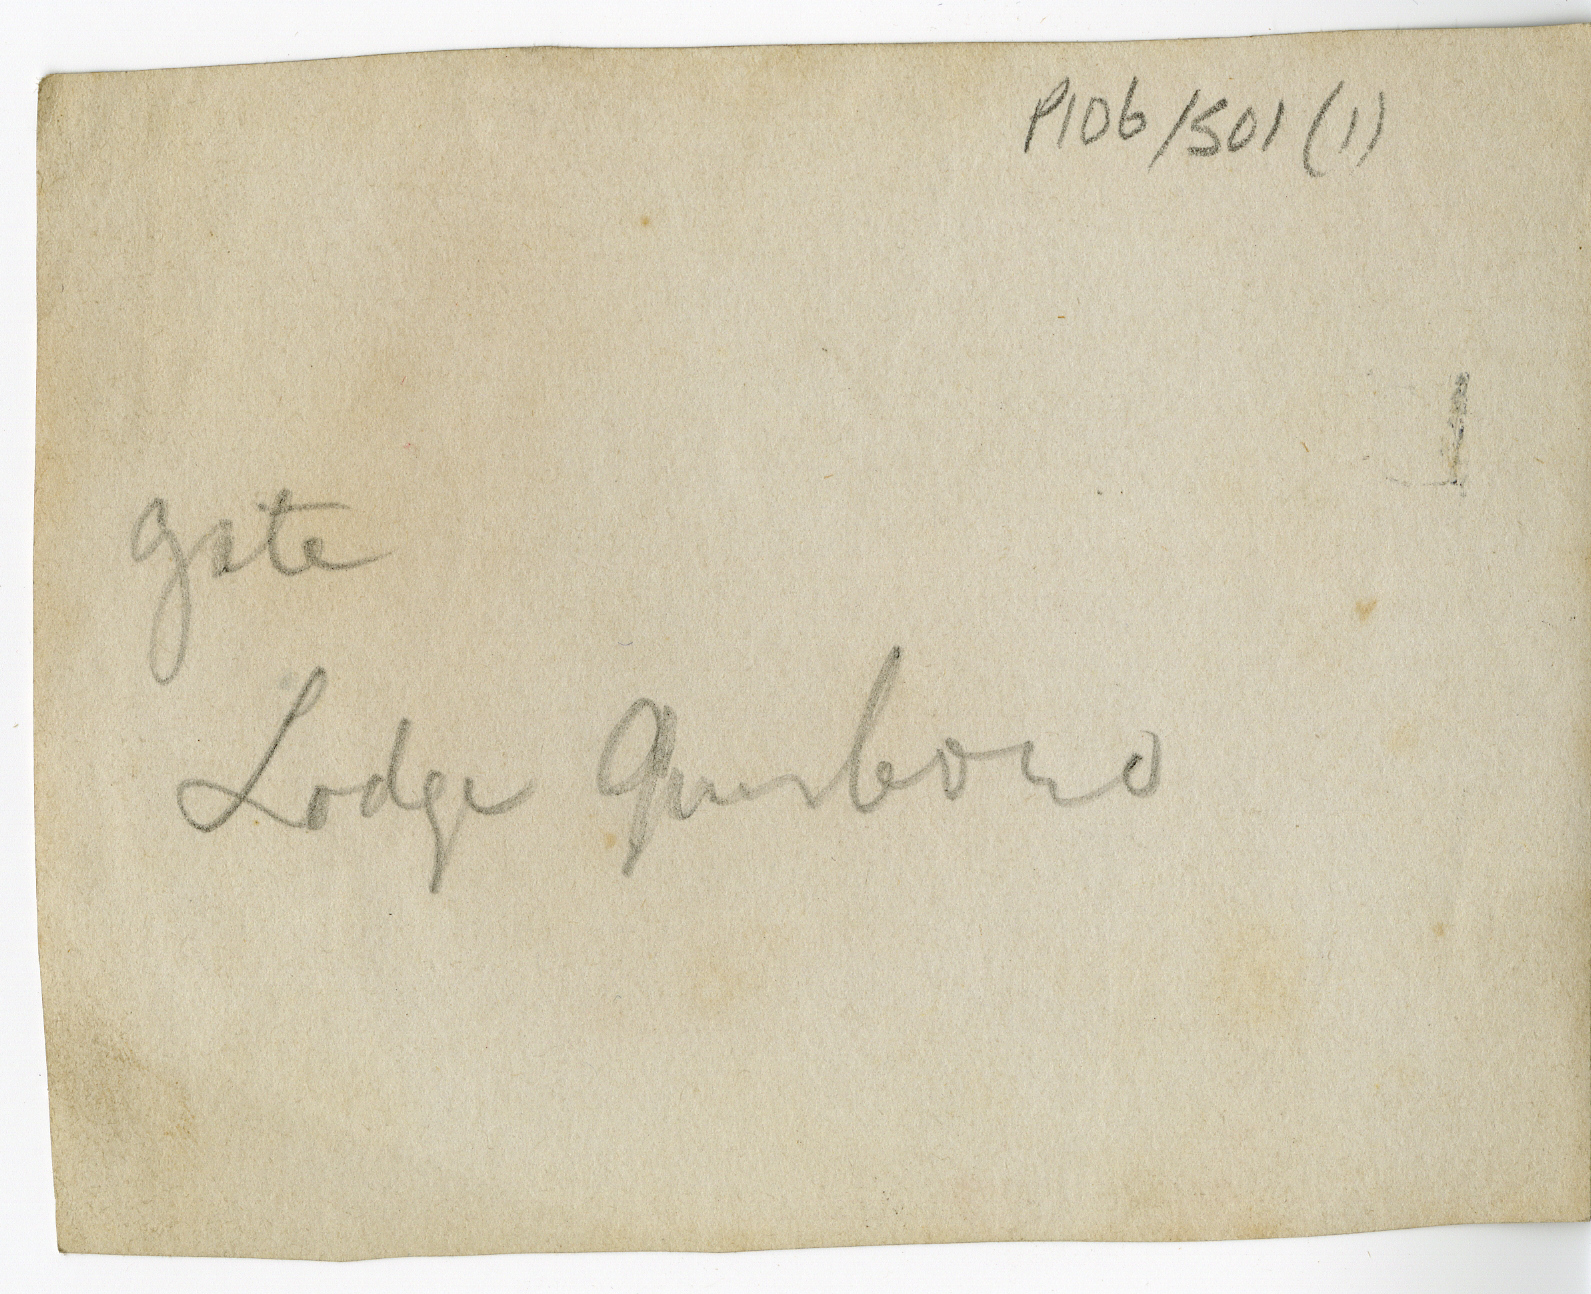 P106/501(1)
gate
Lodge Gunsboro